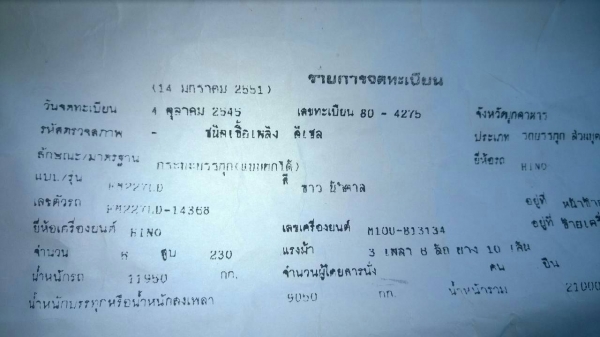 รายการจดทะเบียน
(14 มกราคม 2551)
วันจดทะเบียน 4 ตุลาคม 2545 เลขทะเบียน 80 - 4275 จังหวัดมุกดาหาร
รหัสตรวจสภาพ - ชนิดเชื้อเพลิง ดีเซล ประเภท
ลักษณะ/มาตรฐาน กระบะบรรทุก(แบบยกได้) ยี่ห้อรถ HINO
แบบ/รุ่น FM227LD สี ขาว น้ำตาล
เลขตัวรถ FM227LD-14368 อยู่ที่
ยี่ห้อเครื่องยนต์ HINO เลขเครื่องยนต์ M10U-B13134 อยู่ที่
จำนวน 6 สูบ 230 แรงม้า 3 เพลา 6 ล้อ ยาง 10 เส้น
น้ำหนักรถ 11950 กก. จำนวนผู้โดยสารนั่ง คน ยืน
น้ำหนักบรรทุกหรือน้ำหนักลงเพลา 9050 กก. น้ำหนักรวม 21000